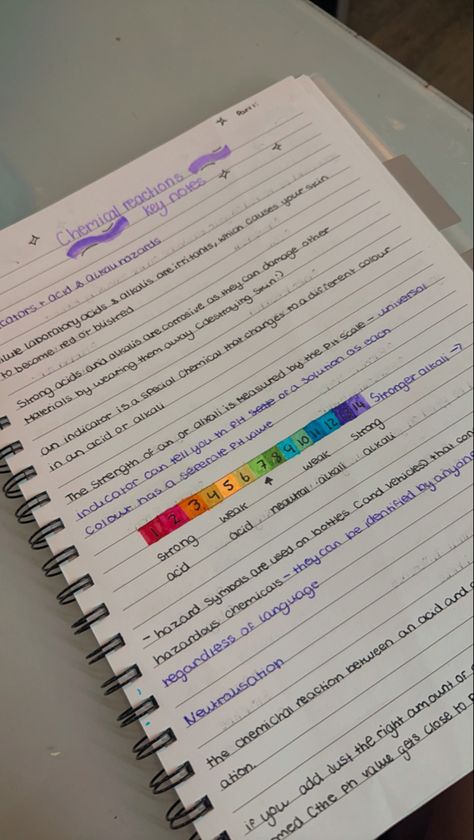 Chemical reactions
key notes
cators + acid & alkali hazards
ilute laboratory acids & alkalis are irritants, which causes your skin
to become red or blistred
Strong acids and alkalis are corrosive as they can damage other
Materials by wearing them away (destroying skin:)
an indicator is a special chemical that changes to a different colour
in an acid or alkali
The Strength of an or alkali is measured by the PH scale - universal
indicator can tell you to PH of a solution as each
colour has a seperate PH value
1 2 3 4 5 6 7 8 9 10 11 12 13 14 Stronger alkali →
strong weak neautral weak strong
acid acid alkali alkali
- hazard symbols are used on bottles (and vehicles) that con
hazardous chemicals - they can be identified by anyone
regardless of language
Neutralisation
the chemichal reaction between an acid and
ation.
if you add just the right amount or
med (the PH value gets close to